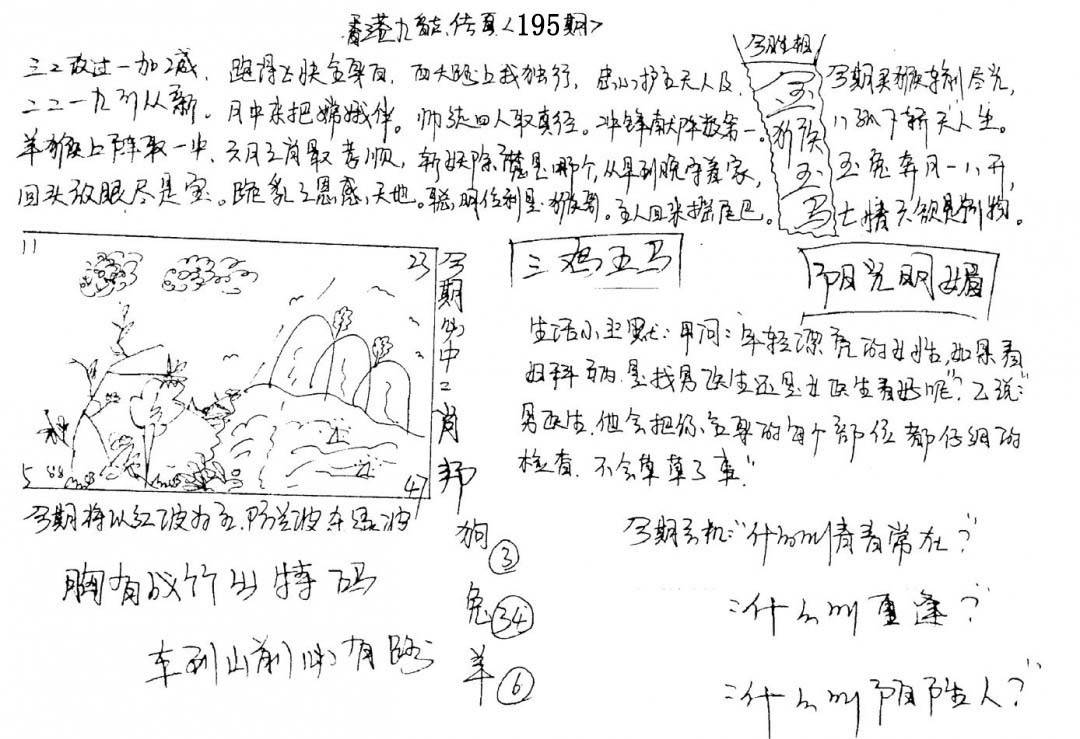 香港九龍传真<195期>
三二改过一加减，跑得飞快全靠, 西天路上我独行，忠心护主天人及,
二二一九引从新。月中来把嫦娥伴。师徒四人取真经。冲锋献阵数第一。
羊猴上阵取一中，六月之肖最孝顺，斩妖除魔是哪个，从早到晚守着家，
回头放眼尽是宝。跪乳之恩感天地。聪明伶俐是猴哥。主人回来摇尾巴。
今期生相
玉
猴
玉
马
今期买猴车利尽光，
玉兔奔月一八开，
11
23
5
47
今期必中二肖
狗③
兔㉞
羊⑥
三鸡五马
阳光明媚
生活小幽默：甲问："年轻漂亮的女性，如果看
妇科病是找男医生还是女医生看好呢"？乙说："
男医生，他会把你全身的每个部位都仔细的
检查，不会草草了事"
今期将以红波为主，防兰波在绿波
胸有成竹出特码
车到山前必有路
今期玄机："什么叫青春常在？"
："什么叫重逢？"
："什么叫阴阳人？"